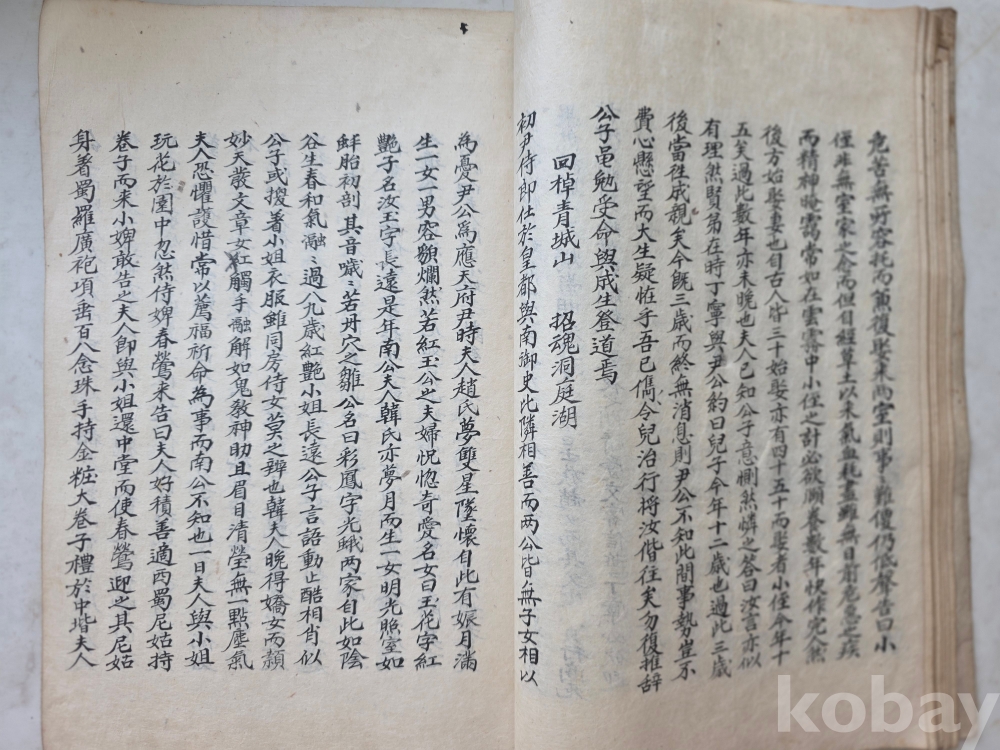 危苦無所容托而兼復娶来两室則事事難便仍低聲告曰小
侄非無室家之念而但自經草土以来氣血耗盡雖無目前危急之疾
而精神晻靄常如在雲霧中小侄之計必欲願養数年快作完然
後方始娶妻也自古人皆三十始娶亦有四十五十而娶者小侄今年十
五矣過此数年亦未晚也夫人已知公子意惻然憐之答曰汝言亦似
有理然賢弟在時丁寧與尹公約曰兒子今年十二歲也過此三歲
後當往成親矣今既三歲而終無消息則尹公不知此間事勢豈不
費心懸望而大生疑恠乎吾已儁令兒治行將汝偕往矣勿復推辞
公子黽勉受命與成生登道焉
回棹青城山 招魂洞庭湖
初尹侍郎仕於皇都與南御史比隣相善而两公皆無子女相以
為憂尹公為應天府尹時夫人趙氏夢雙星墜懷自此有娠月滿
生一女一男容貌爛然若紅玉公之夫婦怳惚奇愛名女曰玉花字紅
艷子名汝玉字長遠是年南公夫人韓氏亦夢月而生一女明光照室如
蚌胎初剖其音噦噦若丹穴之雛公名曰彩鳳字光珴两家自此如陰
谷生春和氣瀜瀜過八九歲紅艷小姐長遠公子言語動止酷相肖似
公子或搜著小姐衣服雖同房侍女莫之辨也韓夫人晚得嬌女而頴
妙天藂文章女紅觸手融解如鬼教神助且眉目清瑩無一點塵氣
夫人恐懼護惜常以薦福祈命為事而南公不知也一日夫人與小姐
玩花於園中忽然侍婢春鶯来告曰夫人好積善適西蜀尼姑持
卷子而来小婢敢告之夫人即與小姐還中堂而使春鶯迎之其尼姑
身著蜀羅廣袍項垂百八念珠手持金粧大卷子禮於中堦夫人
kobay